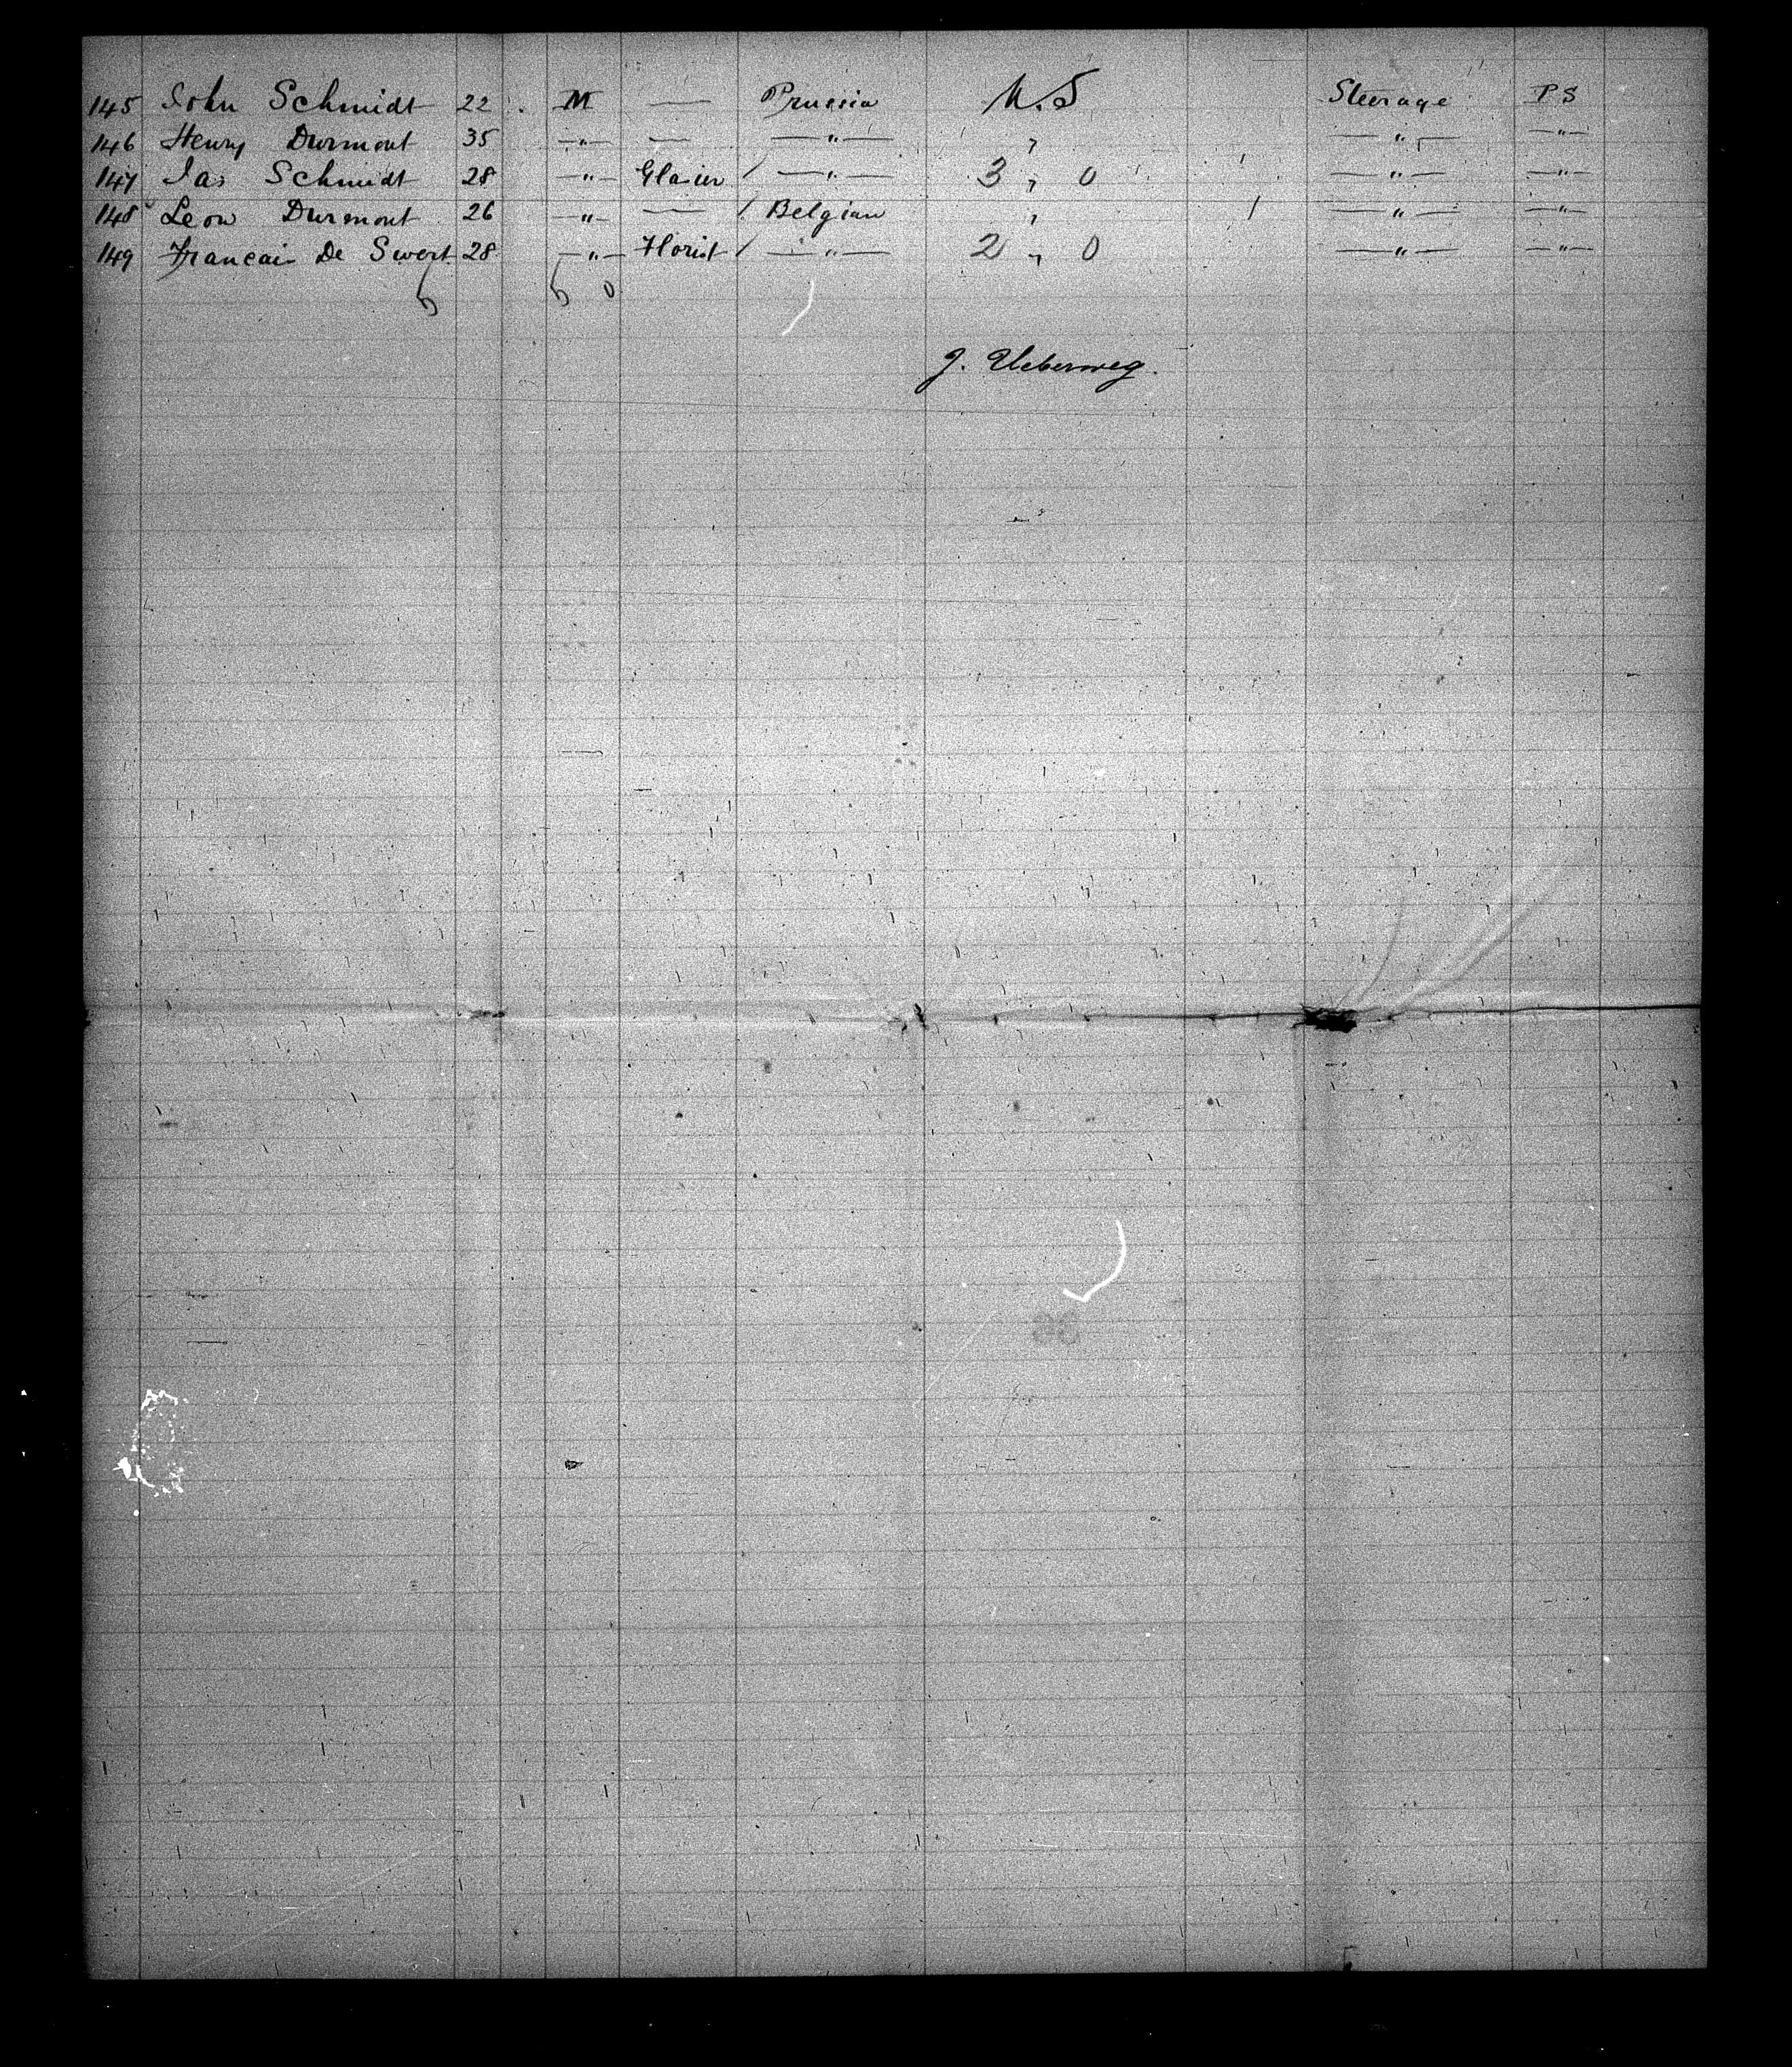 145 John Schmidt 22 M — Prussia U.S Steerage PS
146 Henry Durmont 35 —"— — —"— " —"— —"—
147 Jas Schmidt 28 —"— Glasier / —"— 3 " 0 —"— —"—
148 Leon Durmont 26 —"— — / Belgian " / —"— —"—
149 Francai De Swert 28 —"— Florist / —"— 2 " 0 —"— —"—
5 5 0
J. Ueberweg.